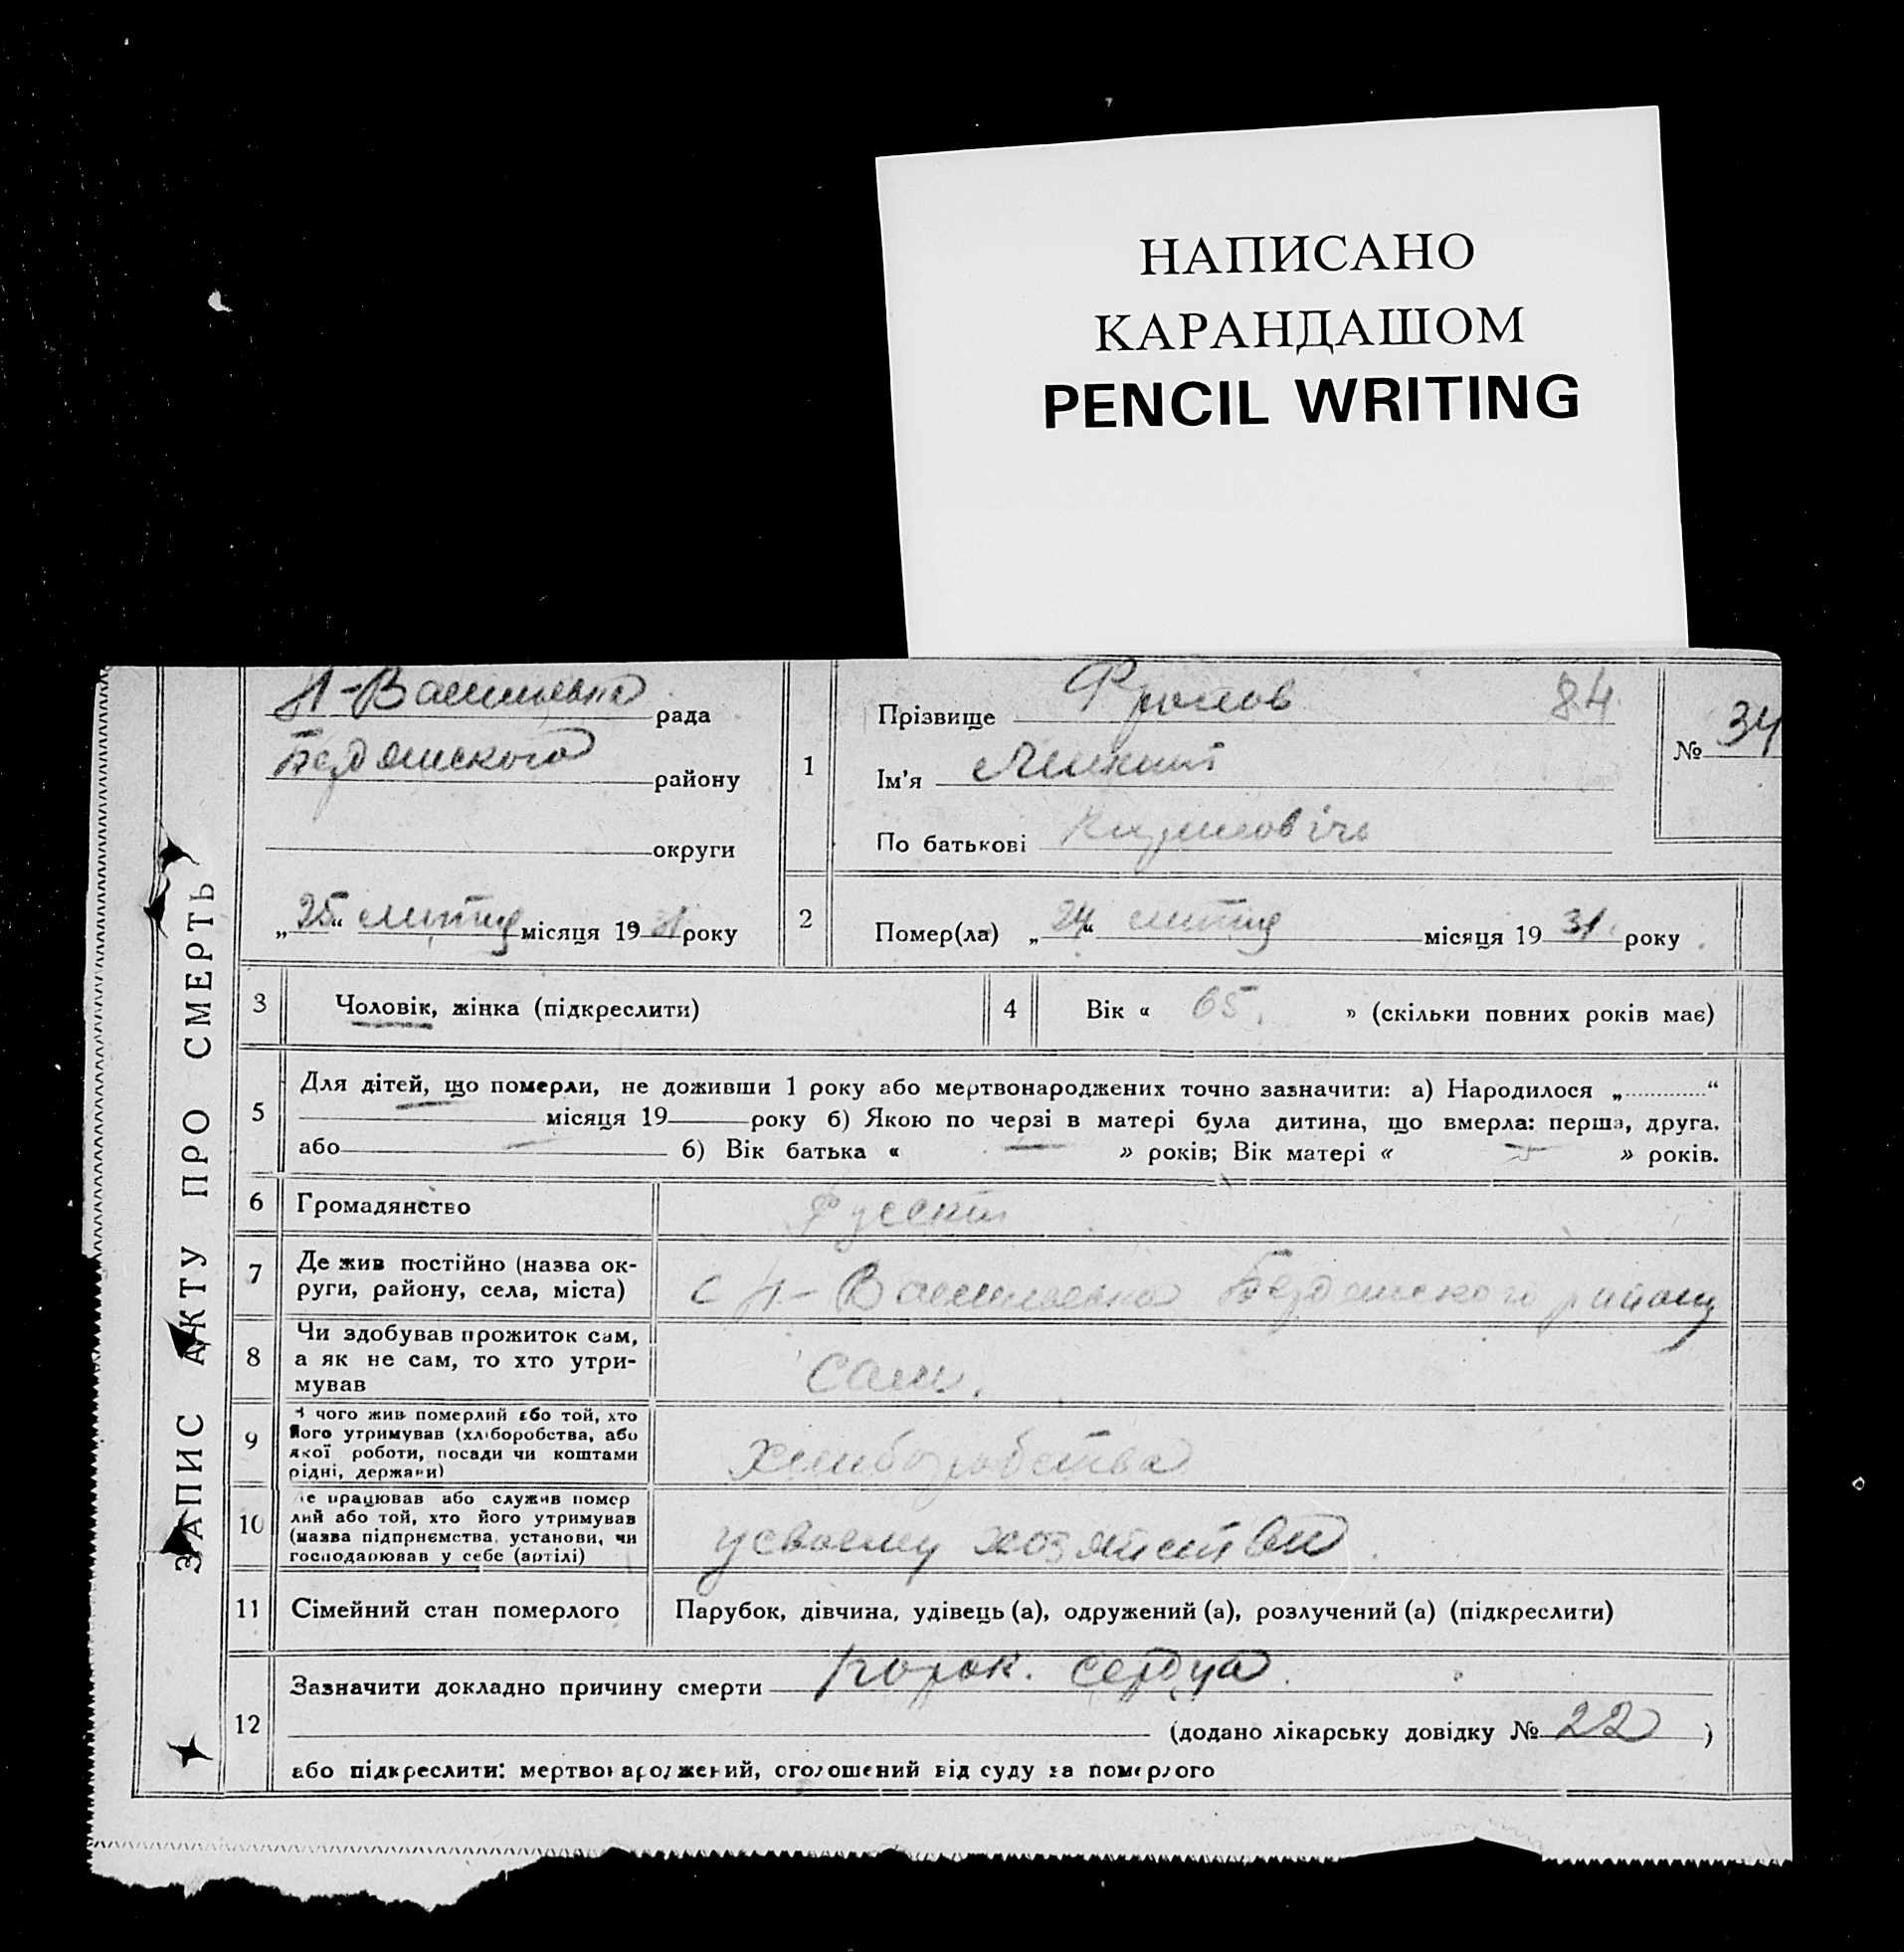 НАПИСАНО
КАРАНДАШОМ
PENCIL WRITING
ЗАПИС АКТУ ПРО СМЕРТЬ
Н-Васильевка рада
Бердянского району
округи
„25“ лютця місяця 1931 року
1
Прізвище Фролов 84
Ім'я
По батькові
№ 34
2
Помер(ла) „24“ лютця місяця 1931 року
3 Чоловік, жінка (підкреслити)
4 Вік « 65 » (скільки повних років має)
5 Для дітей, що померли, не доживши 1 року або мертвонароджених точно зазначити: а) Народилося „............“
місяця 19 року б) Якою по черзі в матері була дитина, що вмерла: перша, друга,
або б) Вік батька « — » років; Вік матері « — » років.
6 Громадянство Русский
7 Де жив постійно (назва ок-
руги, району, села, міста) с Н-Васильевка Бердянского району
8 Чи здобував прожиток сам,
а як не сам, то хто утри-
мував сам.
9 З чого жив померлий або той, хто
його утримував (хліборобства, або
якої роботи, посади чи коштами
рідні, держави) хлиборобства
10 Де працював або служив помер
лий або той, хто його утримував
(назва підприємства, установи, чи
господарював у себе (артілі) у своему
11 Сімейний стан померлого Парубок, дівчина, удівець (а), одружений (а), розлучений (а) (підкреслити)
12 Зазначити докладно причину смерти порок. сердца.
(додано лікарську довідку № 22 )
або підкреслити: мертвонароджений, оголошений від суду за померлого